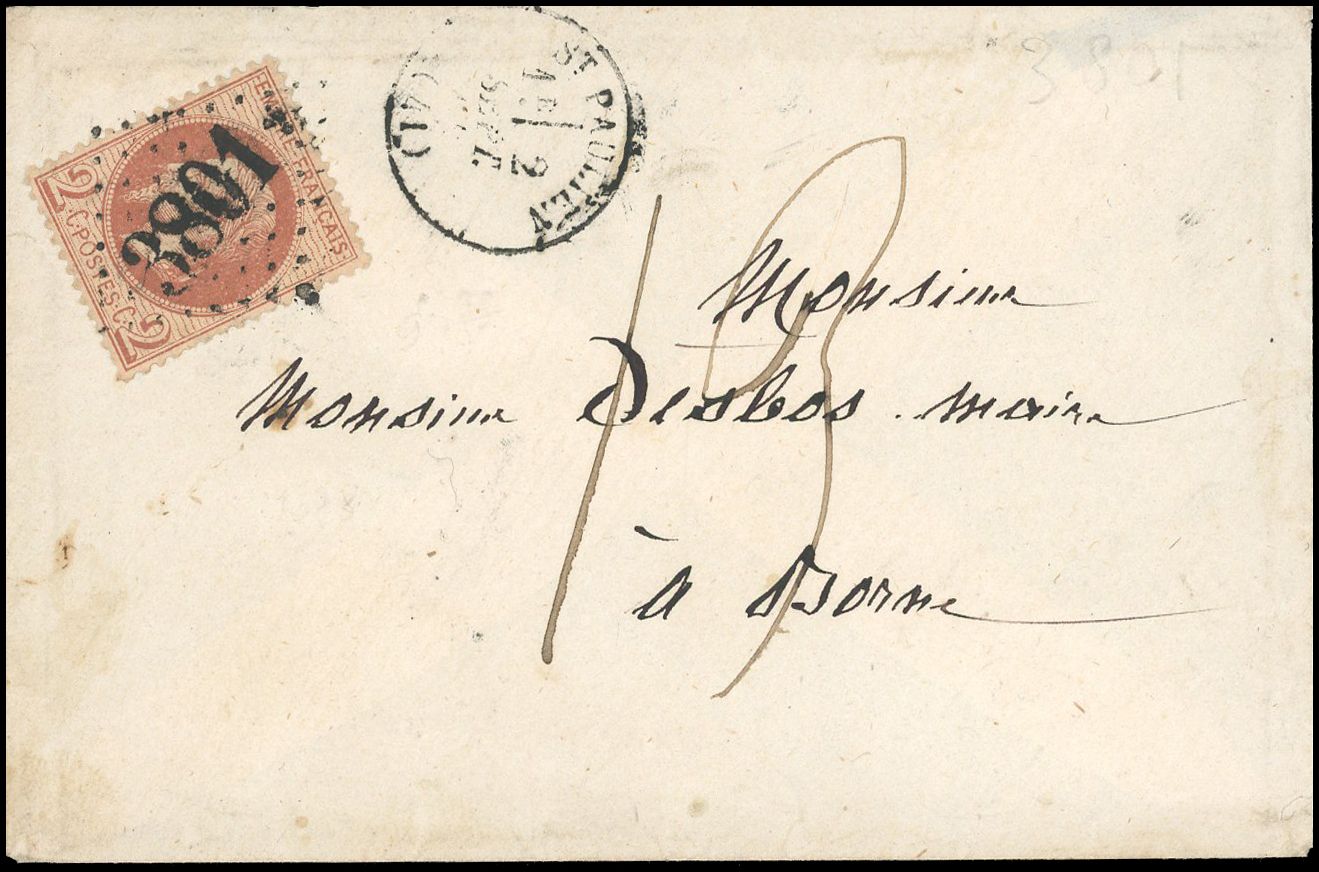 EMPIRE FRANCAIS
3801
2 C. POSTES. C. 2
ST PAULIEN
1E/ 2
SEPT.
(41)
3801
13
Monsieur
Monsieur Desbos maire
à Borne